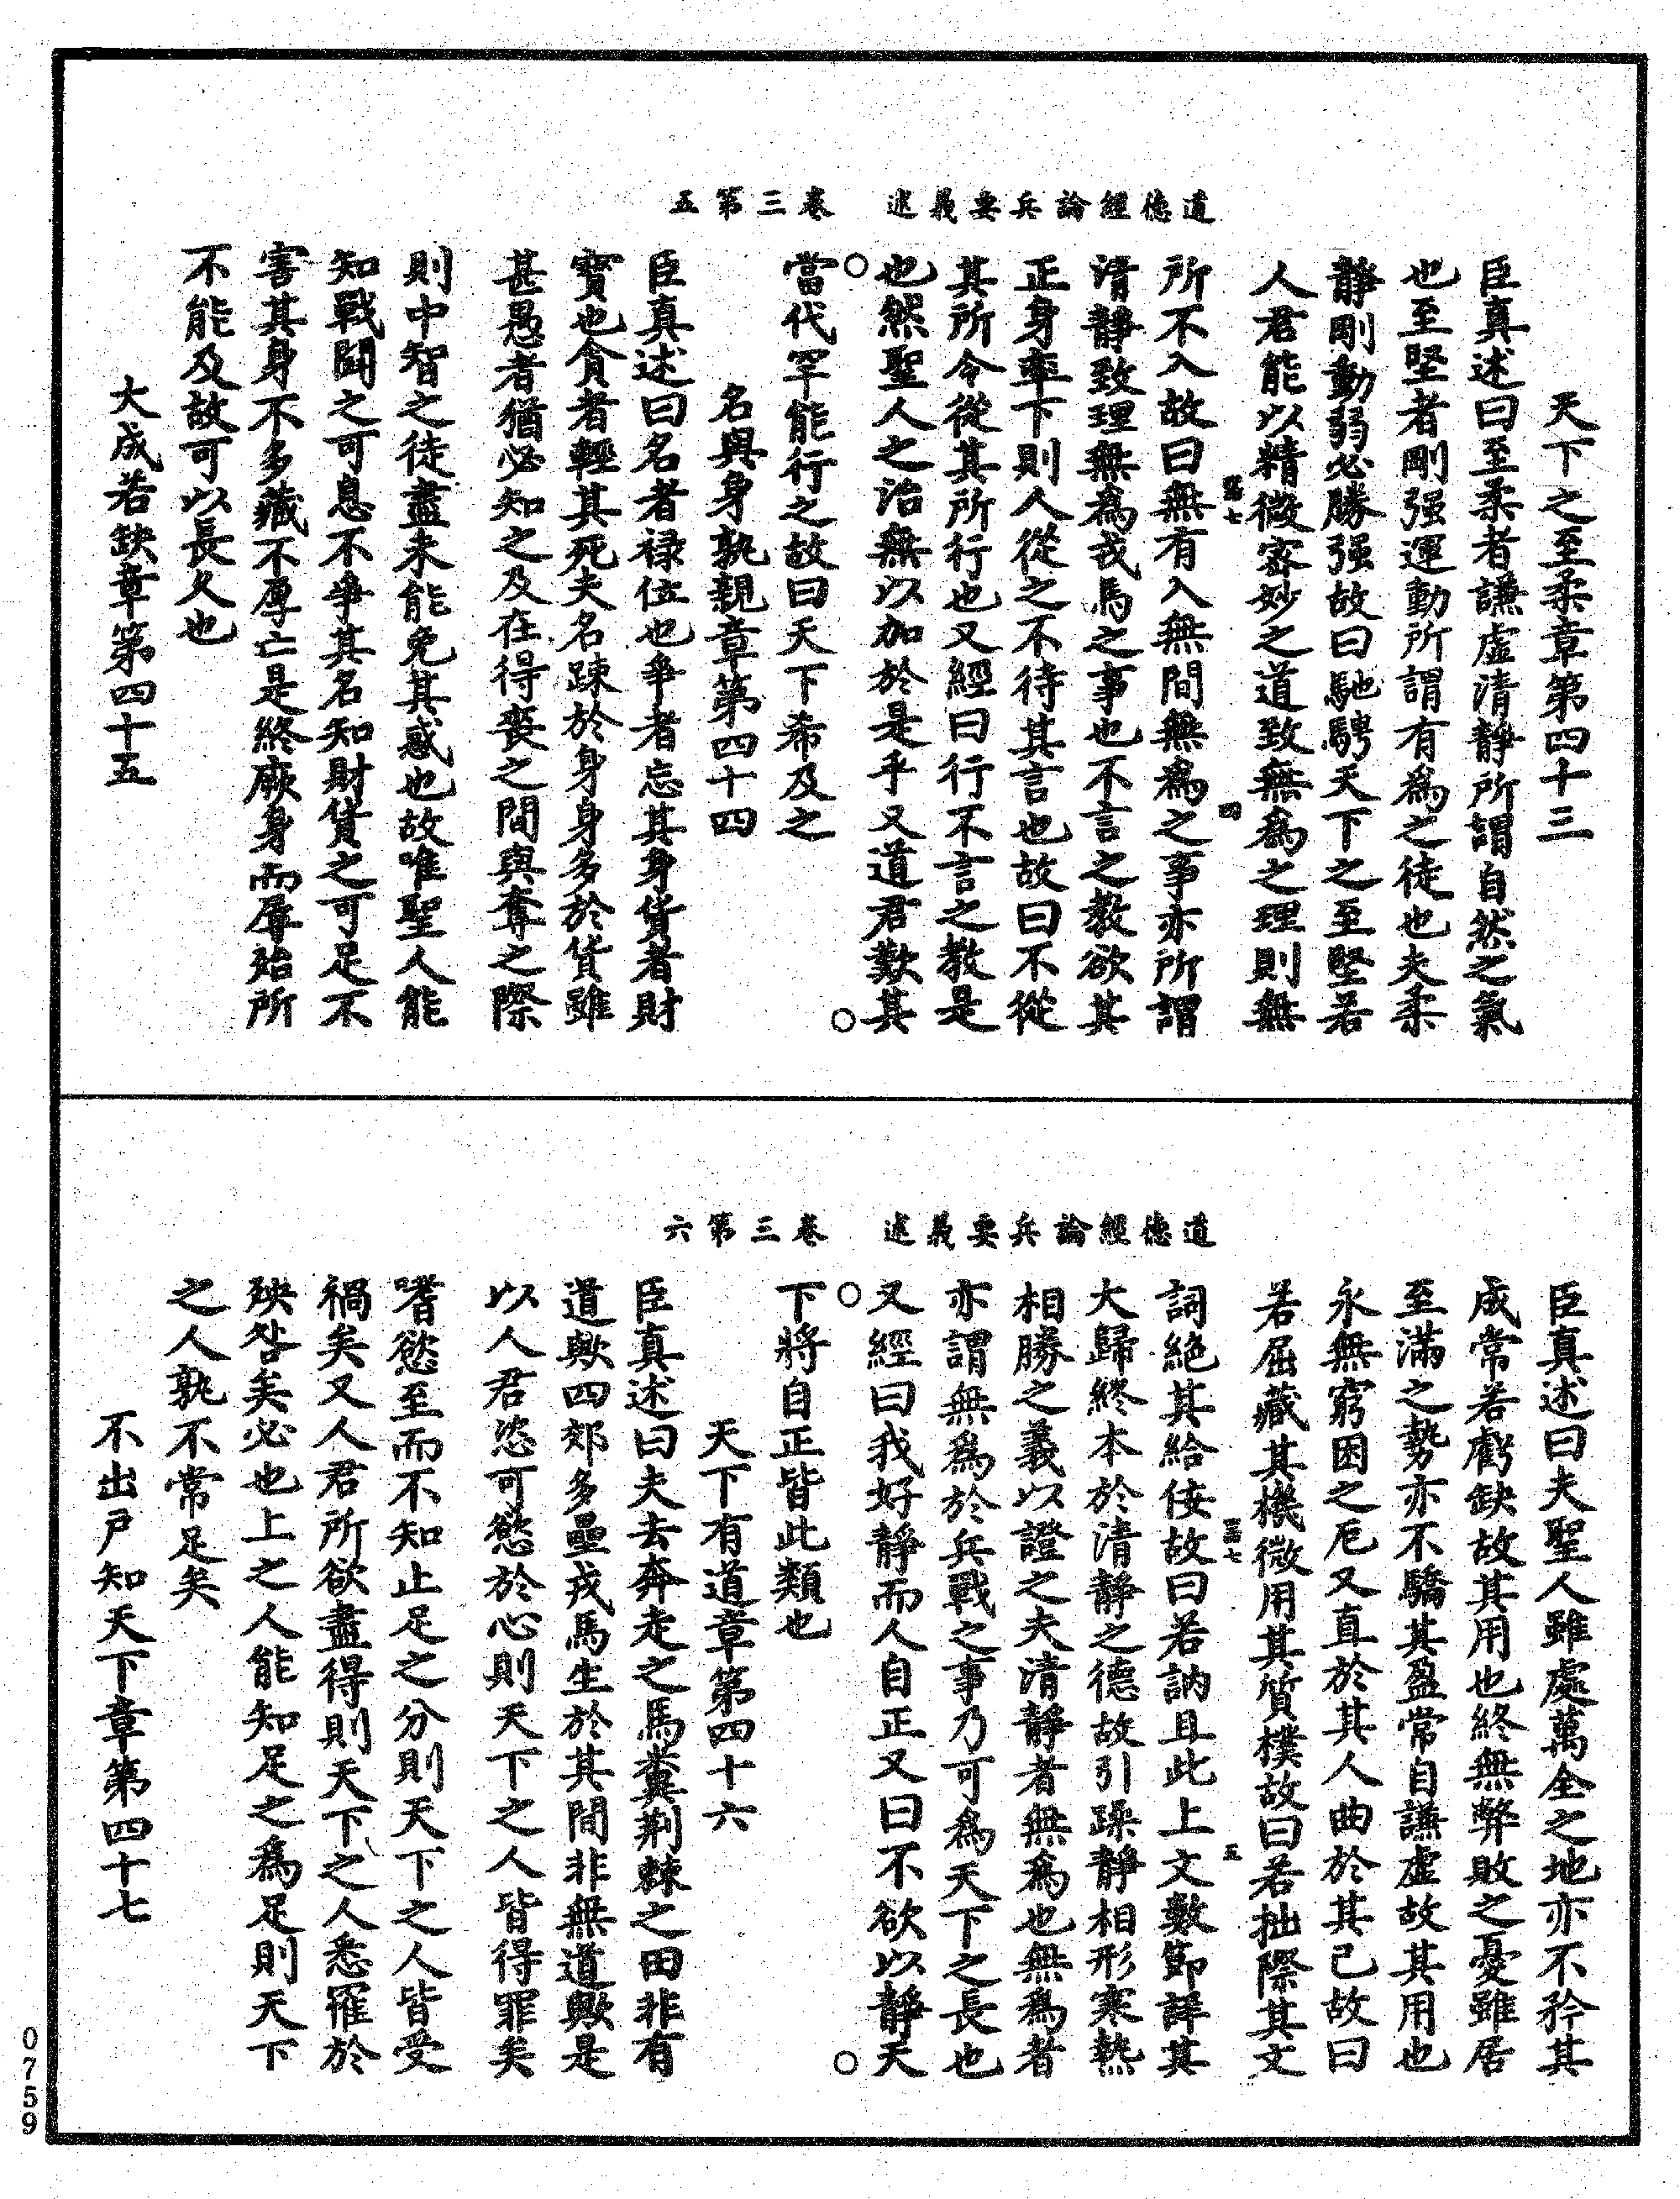 道德經論兵要義述　卷三第五
天下之至柔章第四十三
臣真述曰至柔者謙虛清靜所謂自然之氣
也至堅者剛强運動所謂有爲之徒也夫柔
靜剛動弱必勝强故曰馳騁天下之至堅若
人君能以精微密妙之道致無爲之理則無
所不入故曰無有入無間無爲之事亦所謂
清靜致理無爲戎馬之事也不言之教欲其
正身率下則人從之不待其言也故曰不從
其所令從其所行也又經曰行不言之教是
也然聖人之治無以加於是乎又道君歎其
當代罕能行之故曰天下希及之
名與身孰親章第四十四
臣真述曰名者祿位也爭者忘其身貨者財
寶也貪者輕其死夫名踈於身身多於貨雖
甚愚者猶必知之及在得喪之間與奪之際
則中智之徒盡未能免其惑也故唯聖人能
知戰鬪之可息不爭其名知財貨之可足不
害其身不多藏不厚亡是終厥身而辱殆所
不能及故可以長久也
大成若缺章第四十五
四
道德經論兵要義述　卷三第六
臣真述曰夫聖人雖處萬全之地亦不矜其
成常若虧缺故其用也終無弊敗之憂雖居
至滿之勢亦不驕其盈常自謙虛故其用也
永無窮困之厄又直於其人曲於其己故曰
若屈藏其機微用其質樸故曰若拙際其文
詞絶其給佞故曰若訥且此上文數節詳其
大歸終本於清靜之德故引躁靜相形寒熱
相勝之義以證之夫清靜者無爲也無爲者
亦謂無爲於兵戰之事乃可爲天下之長也
又經曰我好靜而人自正又曰不欲以靜天
下將自正皆此類也
天下有道章第四十六
臣真述曰夫去奔走之馬糞荆棘之田非有
道歟四郊多壘戎馬生於其間非無道歟是
以人君恣可慾於心則天下之人皆得罪矣
嗜慾至而不知止足之分則天下之人皆受
禍矣又人君所欲盡得則天下之人悉罹於
殃咎矣必也上之人能知足之爲足則天下
之人孰不常足矣
不出戸知天下章第四十七
五
0759